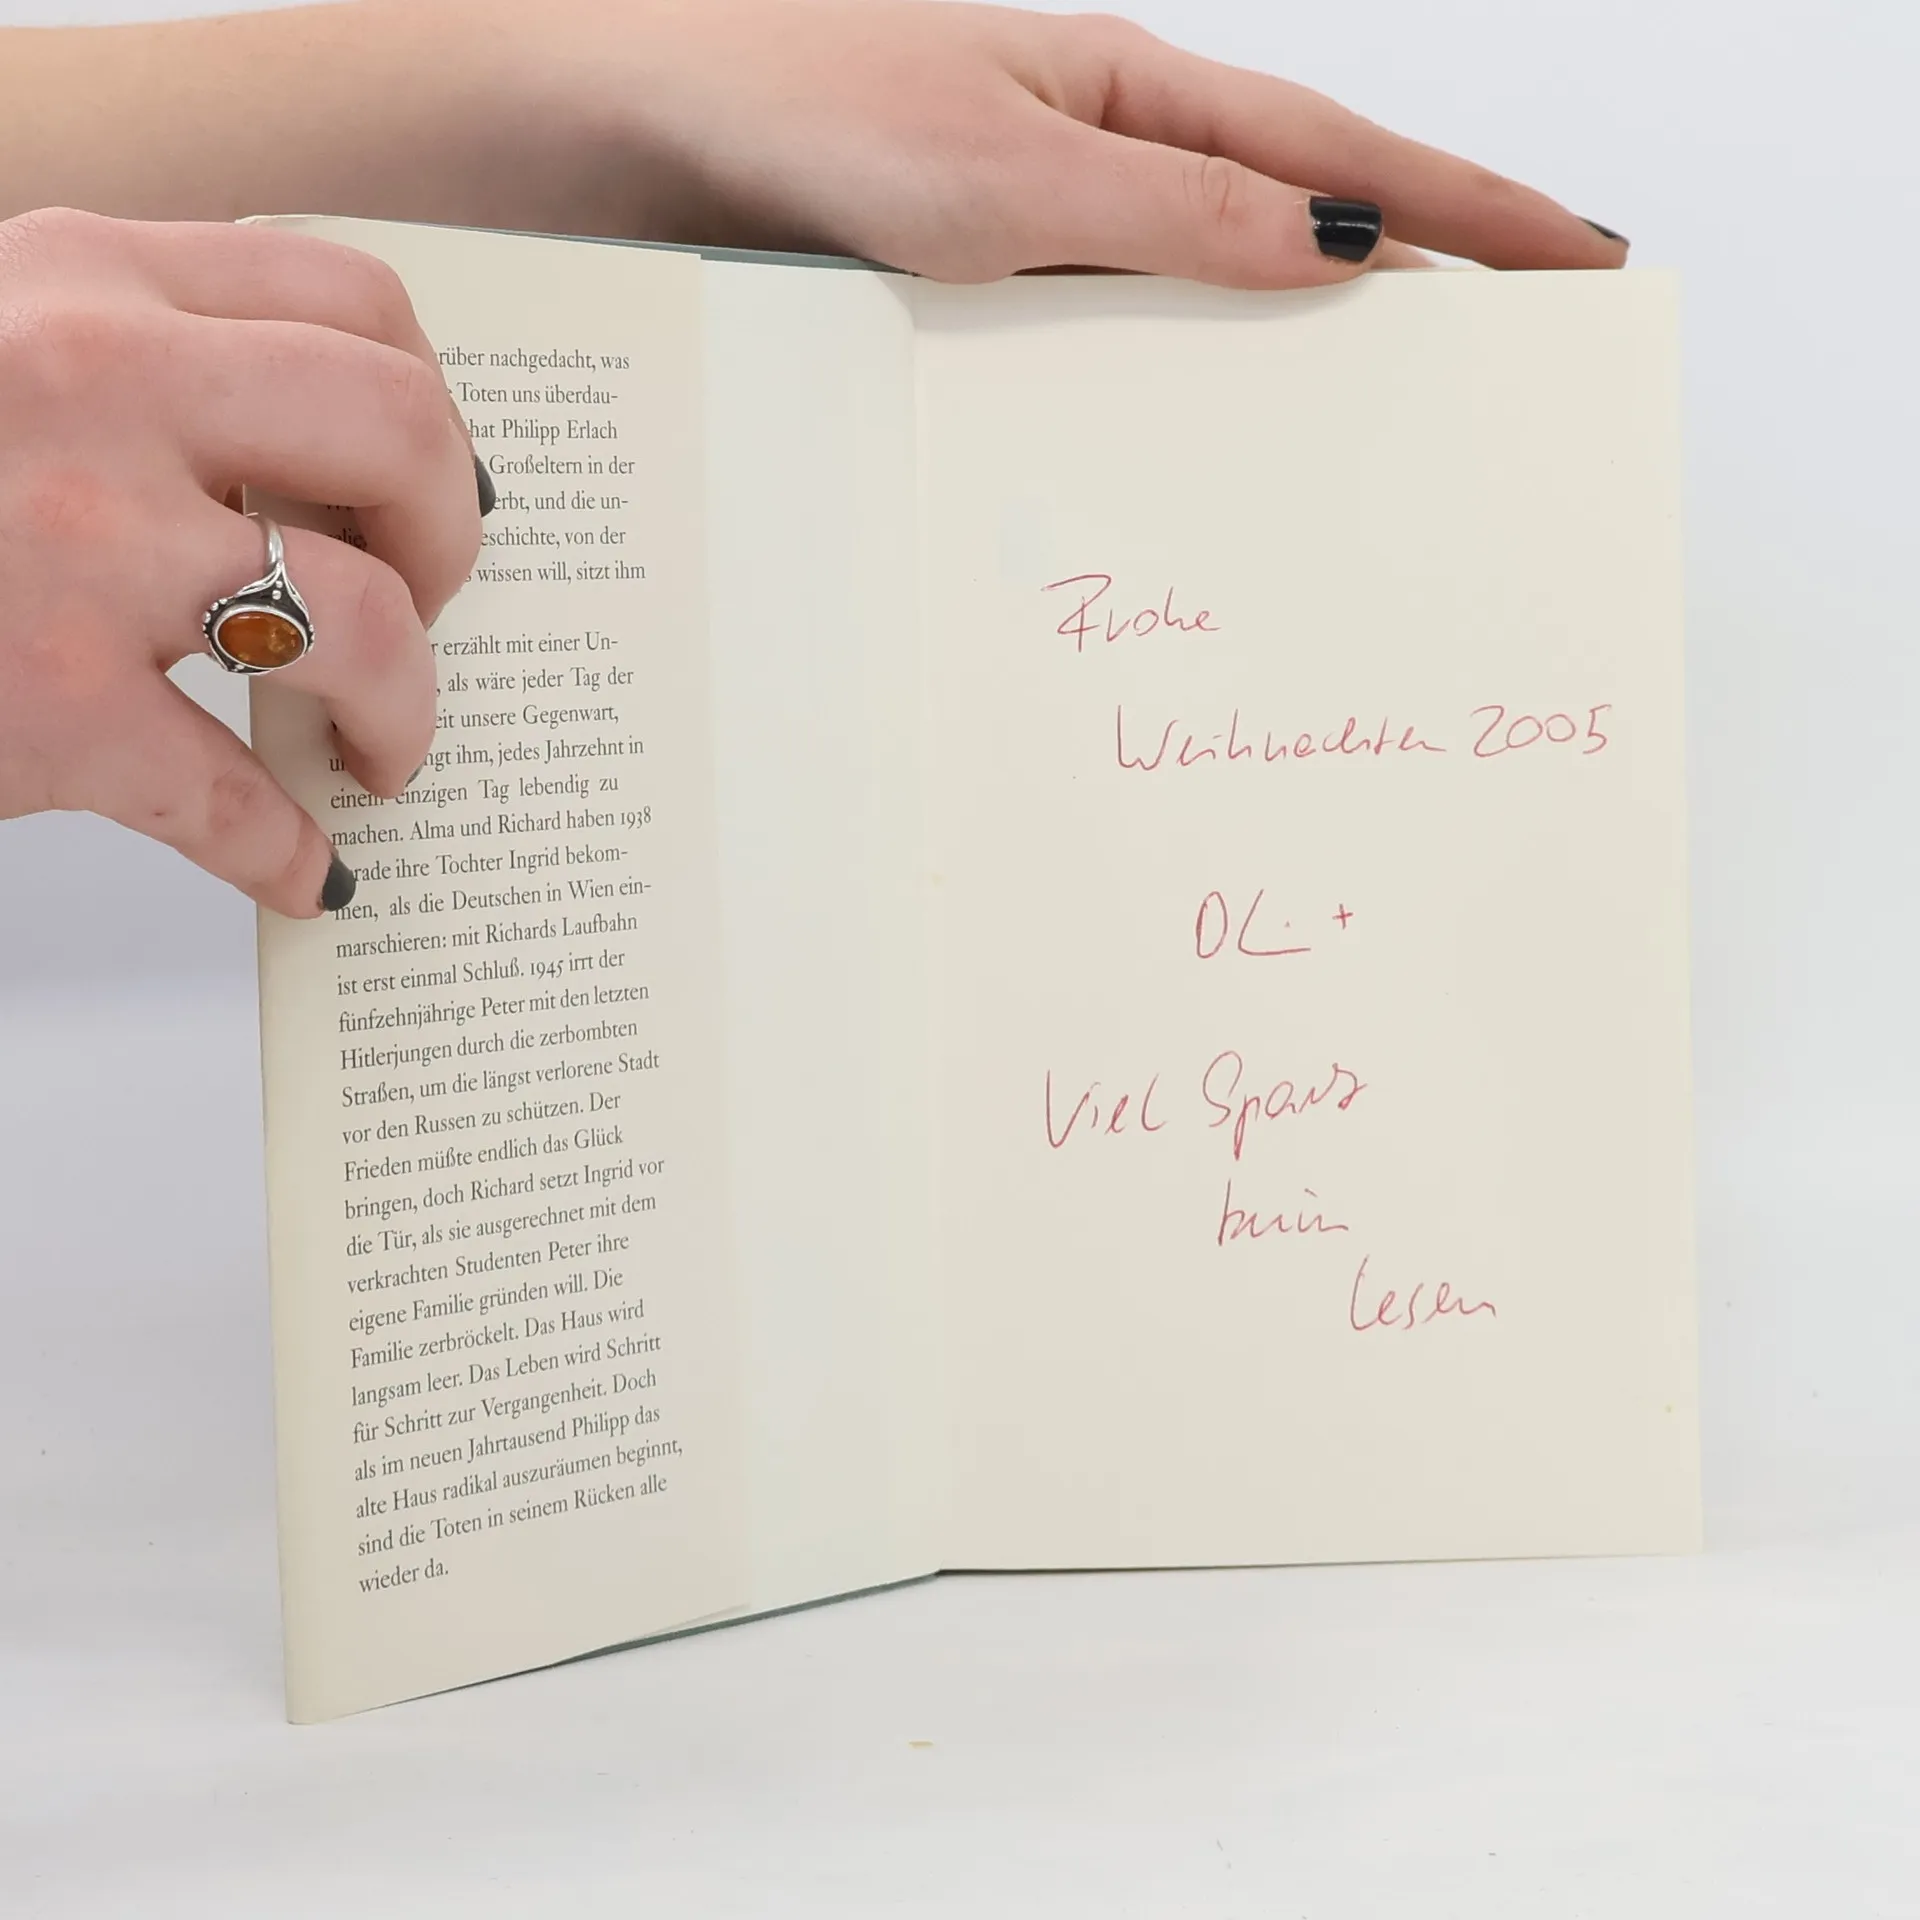 rüber nachgedacht, was
Toten uns überdau-
hat Philipp Erlach
Großeltern in der
erbt, und die un-
eschichte, von der
wissen will, sitzt ihm
r erzählt mit einer Un-
, als wäre jeder Tag der
eit unsere Gegenwart,
ngt ihm, jedes Jahrzehnt in
einem einzigen Tag lebendig zu
machen. Alma und Richard haben 1938
rade ihre Tochter Ingrid bekom-
men, als die Deutschen in Wien ein-
marschieren: mit Richards Laufbahn
ist erst einmal Schluß. 1945 irrt der
fünfzehnjährige Peter mit den letzten
Hitlerjungen durch die zerbombten
Straßen, um die längst verlorene Stadt
vor den Russen zu schützen. Der
Frieden müßte endlich das Glück
bringen, doch Richard setzt Ingrid vor
die Tür, als sie ausgerechnet mit dem
verkrachten Studenten Peter ihre
eigene Familie gründen will. Die
Familie zerbröckelt. Das Haus wird
langsam leer. Das Leben wird Schritt
für Schritt zur Vergangenheit. Doch
als im neuen Jahrtausend Philipp das
alte Haus radikal auszuräumen beginnt,
sind die Toten in seinem Rücken alle
wieder da.
Frohe
Weihnachten 2005
Viel Spass
beim
Lesen